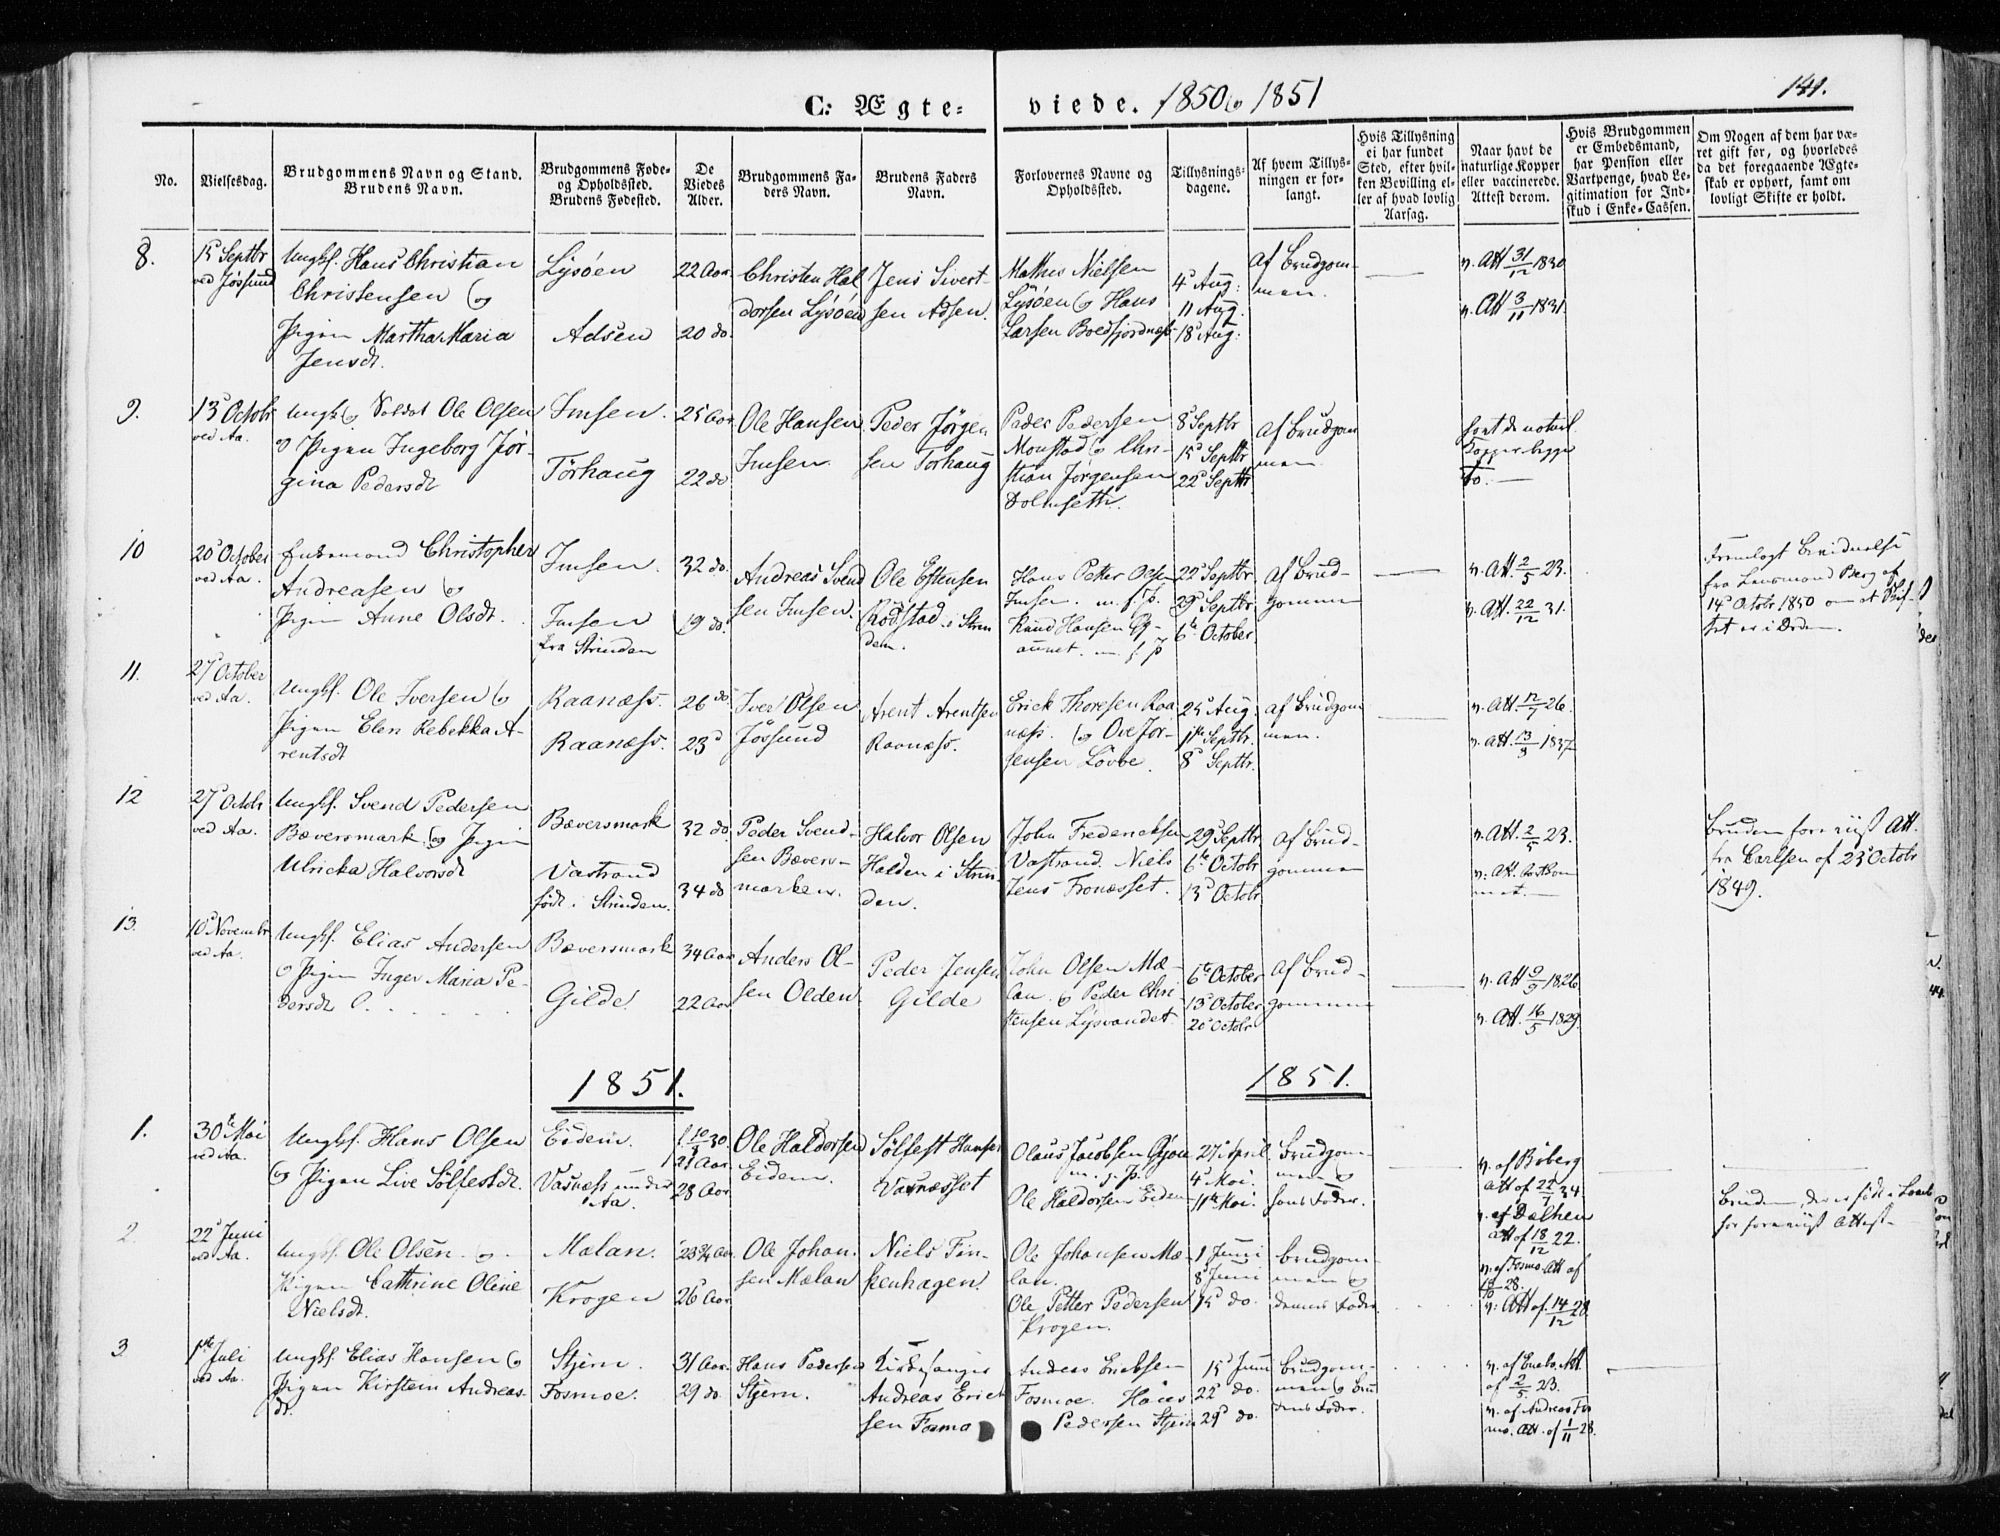 C: Ægteviede. 1850 og 1851
141.
No.
Vielsesdag.
Brudgommens Navn og Stand.
Brudens Navn.
Brudgommens Føde-
og Opholdssted.
Brudens Fødested.
De
Viedes
Alder.
Brudgommens Fa-
ders Navn.
Brudens Faders
Navn.
Forlovernes Navne og
Opholdssted.
Tillysnings-
dagene.
Af hvem Tillys-
ningen er for-
langt.
Hvis Tillysning
ei har fundet
Sted, efter hvil-
ken Bevilling el-
ler af hvad lovlig
Aarsag.
Naar havt de
naturlige Kopper
eller vaccinerede.
Attest derom.
Hvis Brudgommen
er Embedsmand,
har Pension eller
Vartpenge, hvad Le-
gitimation for Ind-
skud i Enke-Cassen.
Om Nogen af dem har væ-
ret gift før, og hvorledes
da det foregaaende Ægte-
skab er ophørt, samt om
lovligt Skifte er holdt.
8.
15 Septbr
ved Jøssund
Ungkf. Hans Christian
Christensen og
Pigen Martha Maria
Jensdt.
Lysøen
Adsen
22 Aar
20 do.
Christen Hal
dorsen Lysøen
Jens Sivert-
sen Adsen.
Mathis Nielsen
Lysøen og Hans
Larsen
4 Aug:
11 Aug.
18 Aug:
Af Brudgom-
men.
v. Att 31/12 1830
v. Att 3/11 1831.
9.
13 Octobr
ved Aa.
Ungk. og Soldat Ole Olsen
og Pigen Ingeborg Jør-
gina Pedersdt
Imsen.
Tørhaug
25 Aar
22 do
Ole Hansen
Imsen.
Peder Jørgen
sen Torhaug
Peder Pedersen
Monstad og Chri-
stian Jørgensen
Dolmseth.
8 Septbr
15 Septbr
22 Septbr
Af Brudgom
men.
havt de naturl
Kopper begge
to.
10
20 October
ved Aa.
Enkemand Christopher
Andreasen og
Pigen Anne Olsdt.
Imsen.
Imsen
fra Strinden
32 do.
19 do.
Andreas Svend
sen Imsen.
Ole Estensen
Rødstad i Strin
den.
Hans Petter Olsen
Imsen. m. f. P.
Knud Hansen
m. f. P
22 Septbr
29 Septbr
6te October
Af Brud-
gommen
v. Att. 2/5 23.
v. Att. 22/12 31.
Fremlagt Bevidnelse
fra Lensmand Berg af
14 Octobr 1850 om at Skif-
tet er i Orden.
11.
27 October
ved Aa.
Ungkf. Ole Iversen og
Pigen Elen Rebekka A-
rentsdt
Raanæss.
Raanæss.
26 do.
23
Iver Olsen
Jøssund
Arent Arentsen
Raanæss.
Erick Thoresen Raa
næss. og Ove Jør-
gensen Løvbe.
25 Aug.
1ste Septbr.
8 Septbr.
af Brudgom
men.
v. Att. 12/7 26.
v. Att. 13/8 1837
12
27 Octobr
ved Aa.
Ungkf. Svend Pedersen
Bæversmark. og Pigen
Ulricka Halvorsdt
Bæversmark
Vastrand
født i Strinden.
32 do.
34 do
Peder Svend-
sen Bævers-
marken.
Halvor Olsen
Halden i Strin-
den.
John Fredericksen
Vastrand. Niels
Jens Fronæsset.
29 Septbr
6te Octobr
13 Octobr
Af Brud-
gommen
v. Att. 2/5 23.
v. Att.
Bruden forevist Att.
fra Carlsen af 23 Octobr
1849.
13.
10 Novembr
ved Aa.
Ungkf. Elias Andersen
og Pigen Inger Maria Pe-
dersdt
Bæversmark
Gilde.
34 Aar
22 Aar
Anders Ol-
sen Olden.
Peder Jensen
Gilde
John Olsen Mæ-
lan. og Peder Chri
stensen Lysvandet.
6te October
13 October
20 Octobr
Af Brud-
gommen
v. Att 9/9 1826
v. Att. 16/5 1829.
1851.
1851.
1.
30te Mai
ved Aa.
Ungkf. Hans Olsen
og Pigen Live Sølfestdt.
Eidem.
Vasnæss under
Aa.
21 Aar
28 Aar
Ole Haldorsen
Eidem.
Sølfest Hansen
Vasnæsset
Olaus Jacobsen
m. f. P.
Ole Haldorsen Eidem
27 April
4 Mai.
11te Mai.
Brudgom-
men og
hans Fader.
v. af Biberg
Att af 22/7 34
v. af Dalhen
Att af 18/12 22.
Bruden, der er født i
har forevist Attest
2
22 Juni
ved Aa.
Ungkf. Ole Olsen. og
Pigen Cathrine Oline
Nielsdt.
Mælan.
Krogen
23 3/4 Aar
26 Aar
Ole Johan.
sen Mælan
Niels Fin-
kenhagen.
Ole Johansen Mæ-
lan.
Ole Petter Pedersen
Krogen.
1 Juni
8 Juni
15 do.
Brudgom-
men og
dennes Fader.
v. af Fosmo Att af
18/10 28.
v: Att af 14/12 28
3
1ste Juli
ved Aa.
Ungkf. Elias Hansen og
Pigen Kirsten Andreas-
dt.
Stjern.
Fosmoe.
31 Aar.
29 do.
Hans Pedersen
Stjern.
Kirkesanger
Andreas Erick
sen Fosmo
Andreas Ericksen
Fosmoe. Hans
Pedersen Stjern
15 Juni
22 do.
29 do.
Brudgom-
men og Bru
dens Fader.
Att.
af 2/5 23.
v. af Andreas Fos
mo. Att. af 1/11 28.